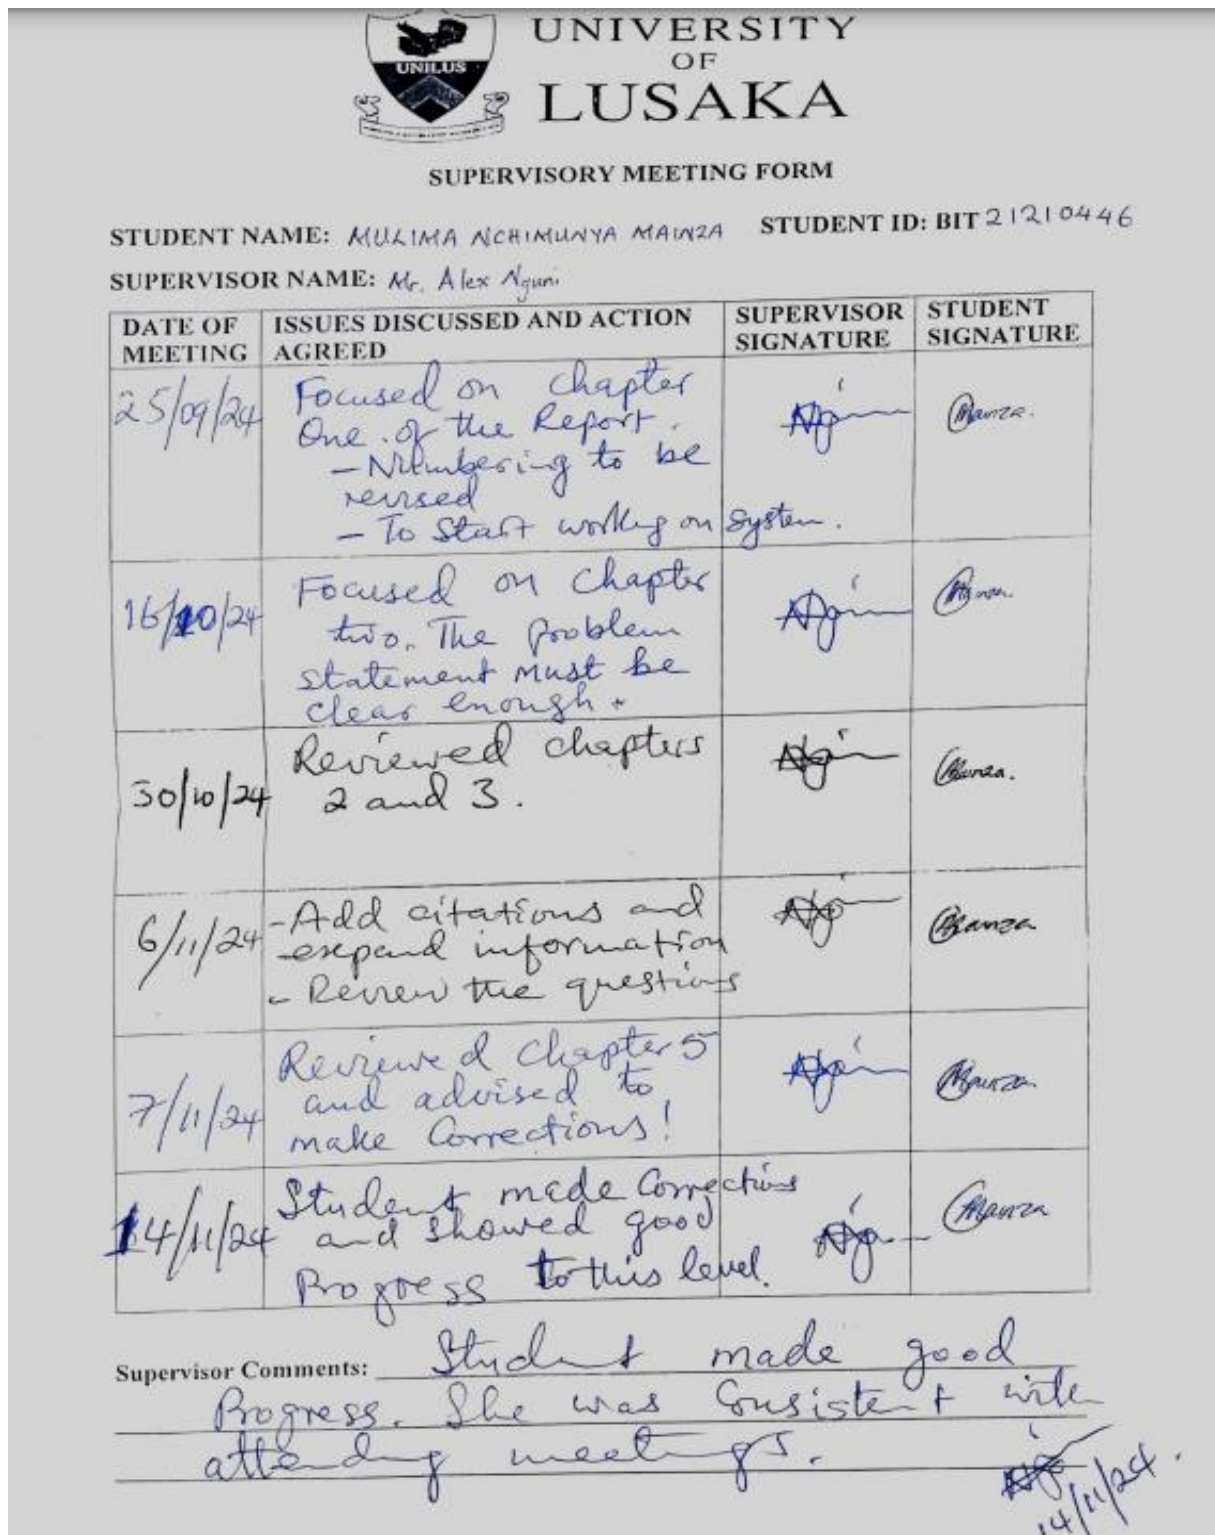 UNIVERSITY
OF
LUSAKA
UNILUS
SUPERVISORY MEETING FORM
STUDENT NAME: MULIMA NCHIMUNYA MAINZA STUDENT ID: BIT 21210446
SUPERVISOR NAME: Mr. Alex Nguni
DATE OF MEETING
ISSUES DISCUSSED AND ACTION AGREED
SUPERVISOR SIGNATURE
STUDENT SIGNATURE
25/09/24
Focused on Chapter
One of the Report.
- Numbering to be
revised
- To Start working on system.
Mainza.
16/10/24
Focused on Chapter
two. The problem
statement must be
clear enough.
30/10/24
Reviewed chapters
2 and 3.
Mainza.
6/11/24
- Add citations and
- expand information
- Review the questions
Mainza
7/11/24
Reviewed Chapter 5
and advised to
make Corrections!
Mainza
14/11/24
Student made Corrections
and showed good
Progress to this level.
Mainza
Supervisor Comments: Student made good
Progress. She was Consistent with
attending meetings.
14/11/24.